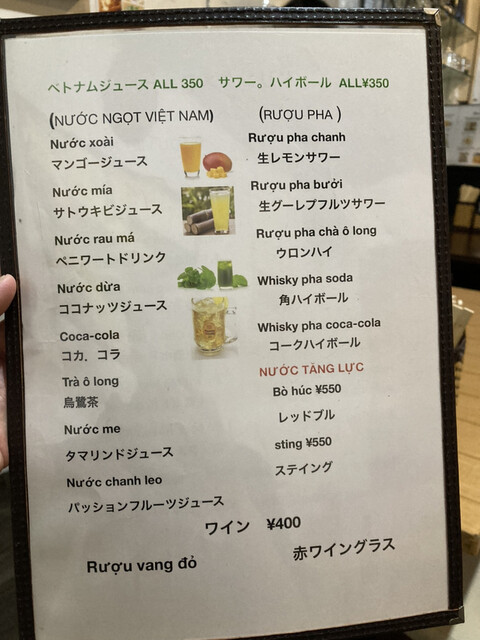 ベトナムジュース ALL 350 サワー。ハイボール ALL¥350
(NƯỚC NGỌT VIỆT NAM)
Nước xoài
マンゴージュース
Nước mía
サトウキビジュース
Nước rau má
ペニワートドリンク
Nước dừa
ココナッツジュース
Coca-cola
コカ．コラ
Trà ô long
烏鷺茶
Nước me
タマリンドジュース
Nước chanh leo
パッションフルーツジュース
(RƯỢU PHA )
Rượu pha chanh
生レモンサワー
Rượu pha bưởi
生グーレプフルツサワー
Rượu pha chà ô long
ウロンハイ
Whisky pha soda
角ハイボール
Whisky pha coca-cola
コークハイボール
NƯỚC TĂNG LỰC
Bò húc ¥550
レッドブル
sting ¥550
ステイング
ワイン ¥400
Rượu vang đỏ 赤ワイングラス